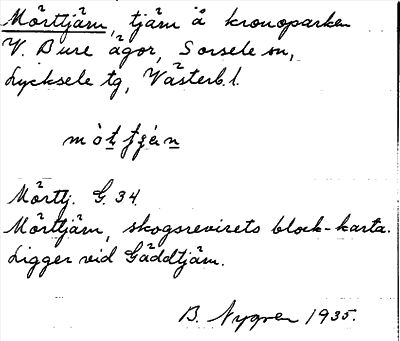 Mörttjärn, tjärn å kronoparken
V. Bure ägor, Sorsele sn,
Lycksele tg, Västerb.l.
Mörttj. G. 34.
Mörttjärn, skogsrevirets block-karta.
Ligger vid Gäddtjärn.
B. Nygren 1935.